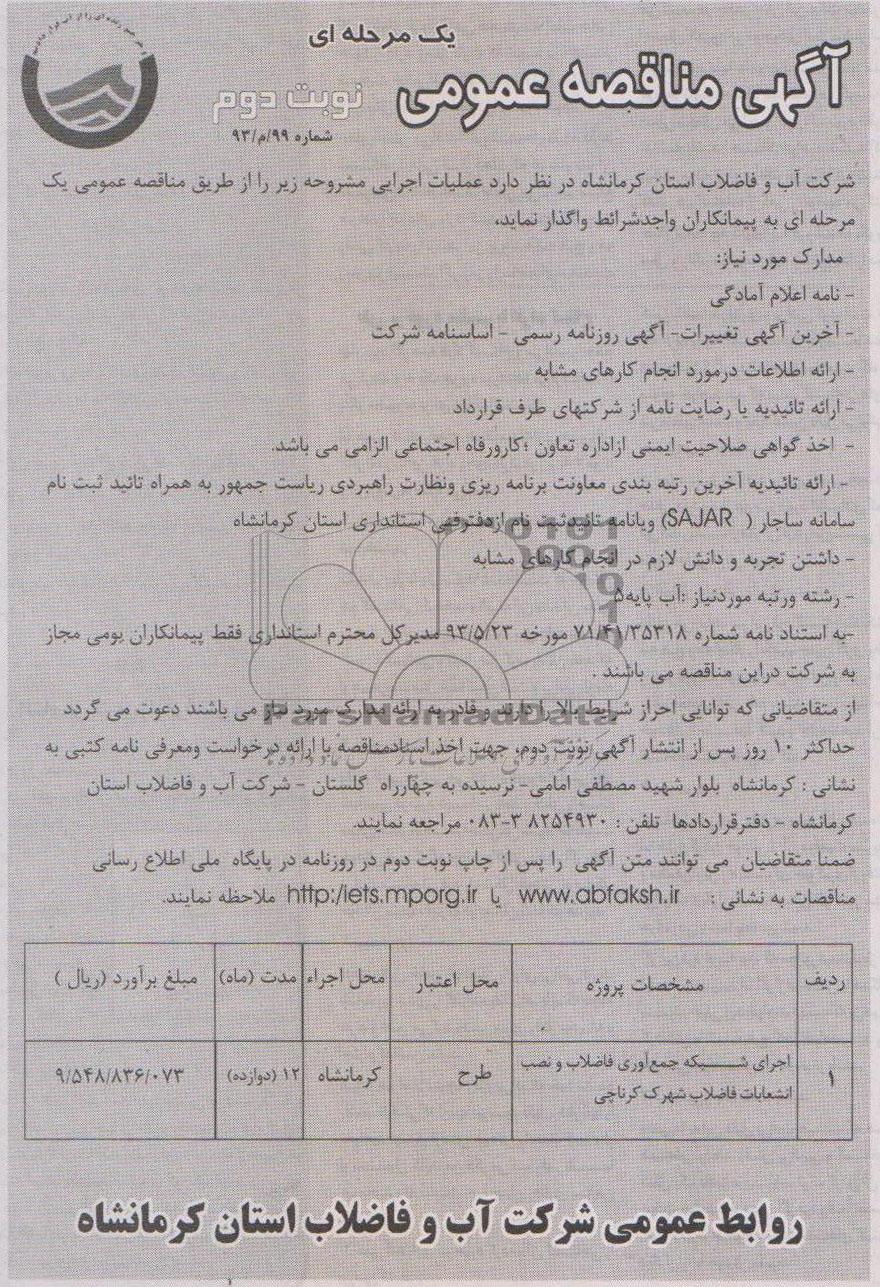 یک مرحله ای
آگهی مناقصه عمومی
نوبت دوم
شماره ۹۹/م/۹۳
شرکت آب و فاضلاب استان کرمانشاه در نظر دارد عملیات اجرایی مشروحه زیر را از طریق مناقصه عمومی یک
مرحله ای به پیمانکاران واجدشرائط واگذار نماید،
مدارک مورد نیاز:
- نامه اعلام آمادگی
- آخرین آگهی تغییرات- آگهی روزنامه رسمی - اساسنامه شرکت
- ارائه اطلاعات درمورد انجام کارهای مشابه
- ارائه تائیدیه یا رضایت نامه از شرکتهای طرف قرارداد
- اخذ گواهی صلاحیت ایمنی ازاداره تعاون ؛کارورفاه اجتماعی الزامی می باشد.
- ارائه تائیدیه آخرین رتبه بندی معاونت برنامه ریزی ونظارت راهبردی ریاست جمهور به همراه تائید ثبت نام
سامانه ساجار ( SAJAR) ویانامه تائیدثبت نام ازدفترفنی استانداری استان کرمانشاه
- داشتن تجربه و دانش لازم در انجام کارهای مشابه
- رشته ورتبه موردنیاز :آب پایه۵
-به استناد نامه شماره ۷۱/۴۱/۳۵۳۱۸ مورخه ۹۳/۵/۲۳ مدیرکل محترم استانداری فقط پیمانکاران بومی مجاز
به شرکت دراین مناقصه می باشند .
از متقاضیانی که توانایی احراز شرایط بالا را دارند و قادر به ارائه مدارک مورد نیاز می باشند دعوت می گردد
حداکثر ۱۰ روز پس از انتشار آگهی نوبت دوم، جهت اخذ اسنادمناقصه با ارائه درخواست ومعرفی نامه کتبی به
نشانی : کرمانشاه بلوار شهید مصطفی امامی- نرسیده به چهارراه گلستان - شرکت آب و فاضلاب استان
کرمانشاه - دفترقراردادها تلفن : ۸۲۵۴۹۳۰ ۳-۰۸۳ مراجعه نمایند.
ضمنا متقاضیان می توانند متن آگهی را پس از چاپ نوبت دوم در روزنامه در پایگاه ملی اطلاع رسانی
مناقصات به نشانی : www.abfaksh.ir یا http:/iets.mporg.ir ملاحظه نمایند.
ردیف | مشخصات پروژه | محل اعتبار | محل اجراء | مدت (ماه) | مبلغ برآورد (ریال )
۱ | اجرای شبکه جمع‌آوری فاضلاب و نصب
انشعابات فاضلاب شهرک کرناچی | طرح | کرمانشاه | ۱۲ (دوازده) | ۹/۵۴۸/۸۳۶/۰۷۳
روابط عمومی شرکت آب و فاضلاب استان کرمانشاه
ParsNamadData